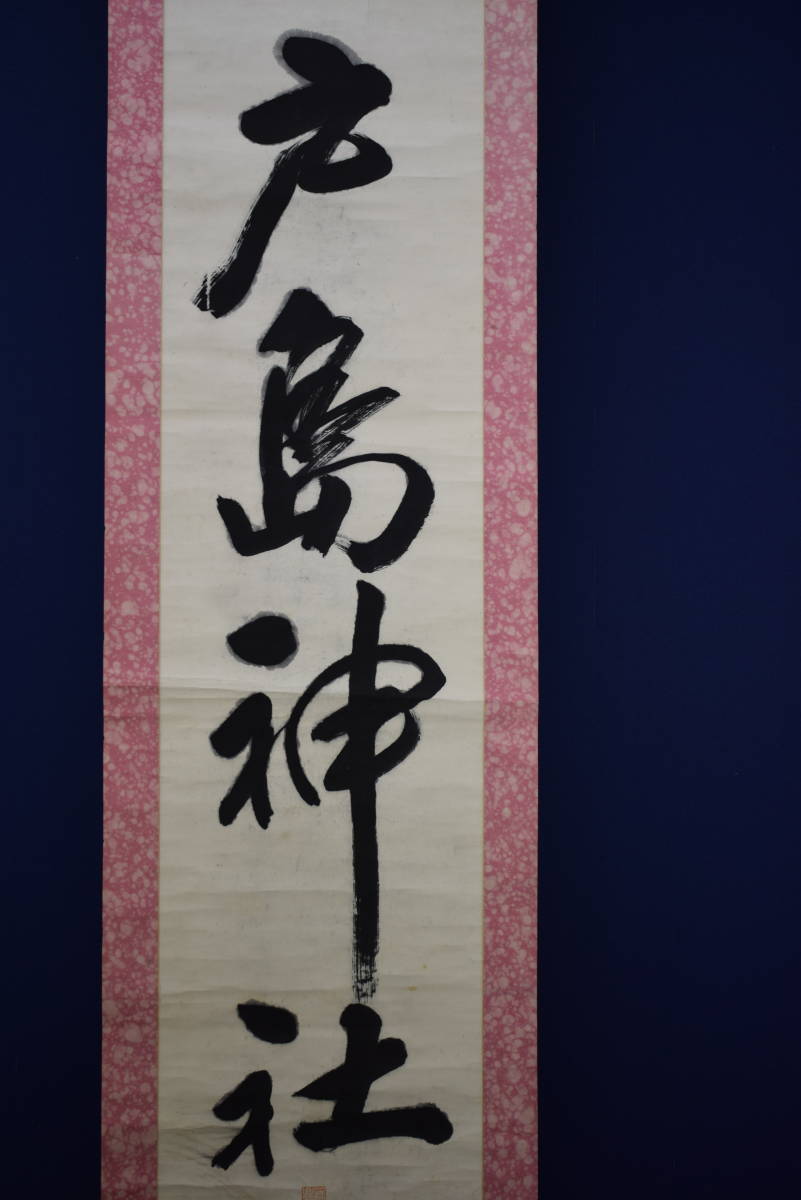 戸島神社